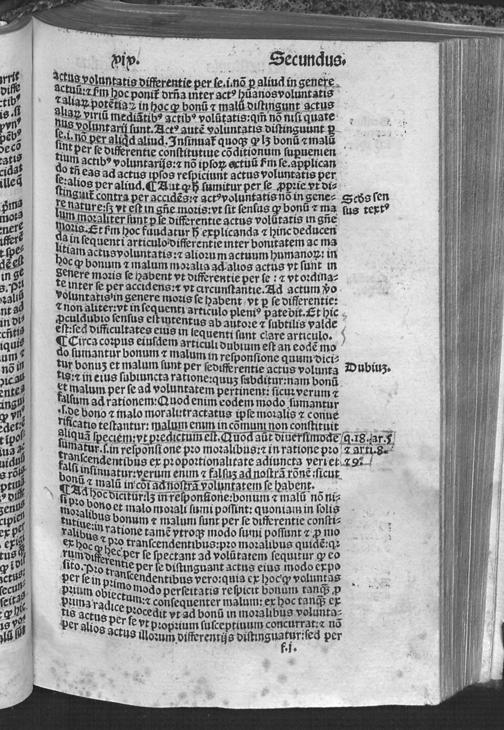 xix. Secundus.
actus voluntatis differentie per se .i. nõ ꝑ aliud in genere
actuũ: & ẜm hoc poniṫ drña inter actꝰ hũanos volũtatis
& aliaꝝ potẽtiaꝝ in hoc ꝙ bonũ & malũ distingunt actus
aliaꝝ viriũ mediãtibꝰ actibꝰ volũtatis: qm̃ nõ nisi quate
nus voluntarij sunt. Actꝰ autẽ voluntatis distinguunt ꝑ
se .i. nõ per aliqd aliud. Insinuat quoqꝫ ꝙ lꝫ bonũ & malũ
sint per se differentie constitutiue cõditionum superuenien
tium actibꝰ voluntarijs: & nõ ipsoꝝ actuũ ẜm se. applican
do tñ eas ad actus ipsos respiciunt actus voluntatis per
se: alios per aliud. ¶ Aut ꝙ h̃ sumitur per se ꝓprie vt di-
stinguit contra per accidẽs: & actꝰ voluntatis nõ in gene-
re nature: sꝫ vt est in gñe moris: vt sit sensus ꝙ bonũ & ma
lum moraliter sunt per se differentie actus volũtatis in gñe
moris. Et ẜm hoc fundatur h̃ explicanda & hinc deducen
da in sequenti articulo differentie inter bonitatem ac ma
litiam actus voluntatis: & aliorum actuum humanoꝝ: in
hoc ꝙ bonum & malum moralia ad alios actus vt sunt in
genere moris se habent vt differentie per se: & vt ordina-
te inter se per accidens: & vt circunstantie. Ad actum ꝟo
voluntatis in genere moris se habent vt per se differentie:
& non aliter: vt in sequenti articulo pleniꝰ patebit. Et hic
ꝓculdubio sensus est intentus ab autore & subtilis valde
est: sed difficultates eius in sequenti sunt clare articulo.
¶ Circa corpus eiusdem articuli dubium est an eodẽ mo
do sumantur bonum & malum in responsione quum dici-
tur bonuꝫ et malum sunt per se differentie actus volunta
tis: & in eius subiuncta ratione: quuꝫ subditur: nam bonũ
et malum per se ad voluntatem pertinent: sicut verum et
falsum ad rationem: Quod enim eodem modo sumantur
.s. de bono & malo morali: tractatus ipse moralis & conue
rtificatio testantur: malum enim in cõmuni non constituit
aliquã speciem: vt predictum est. Quod aut̃ diuersimode
sumatur .s. in responsione pro moralibus: & in ratione pro
transcendentibus ex proportionalitate adiuncta veri et
falsi insinuatur: verum enim & falsuꝫ ad nostrã rõnẽ: sicut
bonũ & malũ in cõi ad nostrã voluntatem se habent.
¶ Ad hoc dicitur: lꝫ in responsione: bonum & malũ nõ ni-
si pro bono et malo morali sumi possint: quoniam in solis
moralibus bonum & malum sunt per se differentie consti-
tutiue: in ratione tamẽ vtroqꝫ modo sumi possunt & ꝓ mo
ralibus & pro transcendentibus: pro moralibus quidẽ: qꝛ
ex hoc ꝙ hec per se spectant ad volũtatem sequitur ꝙ eo
rum differentie per se distinguant actus eius modo expo
sito. Pro transcendentibus vero: quia ex hoc ꝙ voluntas
per se in primo modo perseitatis respicit bonum tanꝙ̃ ꝓ
prium obiectum: & consequenter malum: ex hoc tanꝙ̃ ex
prima radice procedit vt ad bonũ in moralibus volunta-
tis actus per se vt proprium susceptiuum concurrat: & nõ
per alios actus illorum differentijs distinguatur: sed per
f.j.
Scðs sen
sus textꝰ
Dubiuꝫ.
q.18.ar.5
& arti.8.
& 9.